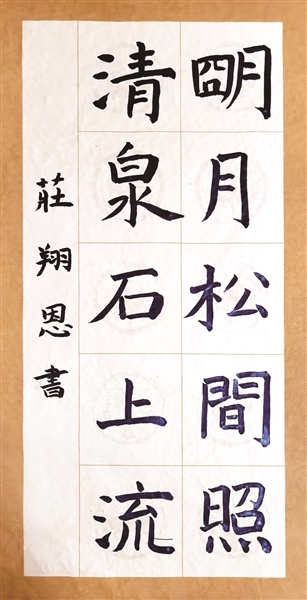 朙月松間照
清泉石上流
莊翔恩書